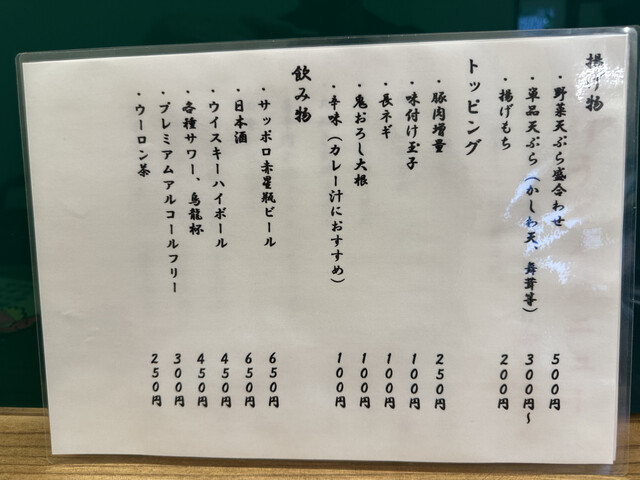 揚げ物
・野菜天ぷら盛合わせ 500円
・単品天ぷら（かしわ天、舞茸等） 300円～
・揚げもち 200円
トッピング
・豚肉増量 250円
・味付け玉子 100円
・長ネギ 100円
・鬼おろし大根 100円
・辛味（カレー汁におすすめ） 100円
飲み物
・サッポロ赤星瓶ビール 650円
・日本酒 650円
・ウイスキーハイボール 450円
・各種サワー、烏龍杯 450円
・プレミアムアルコールフリー 300円
・ウーロン茶 250円